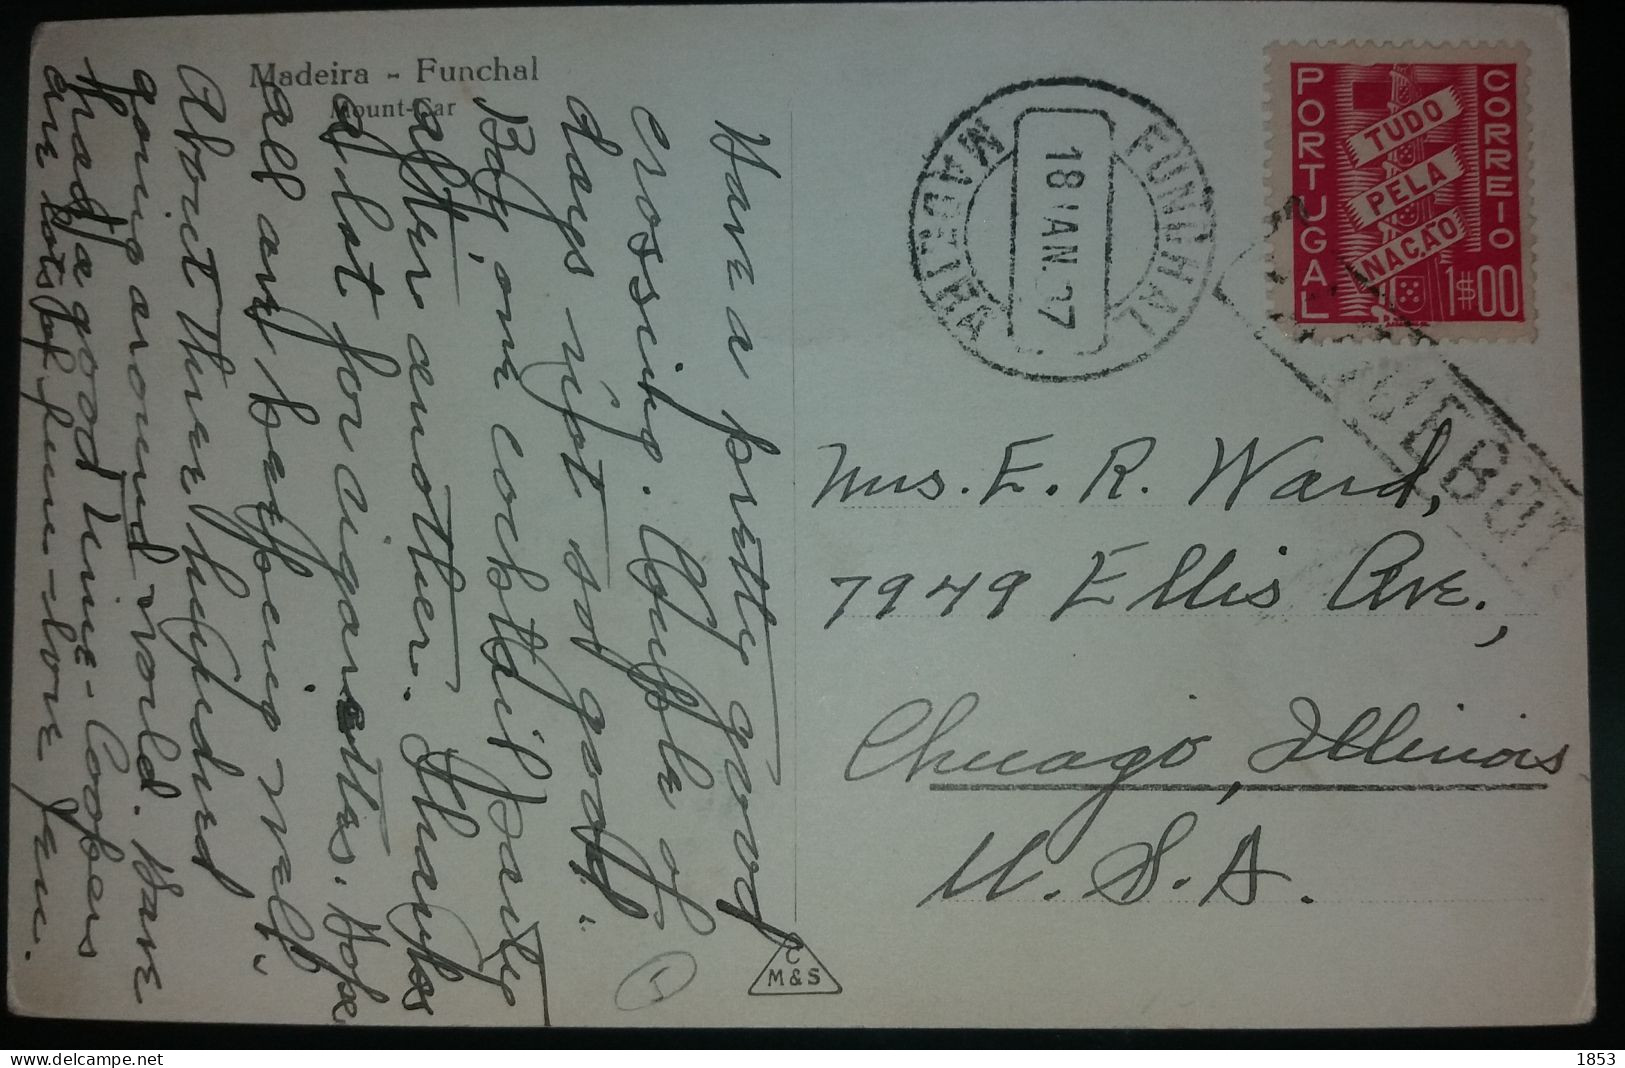 Madeira - Funchal
Mount-Car
Have a pretty good
crossing. Couple of
days not so good.
Boy, one cocktail party
after another. Thanks
a lot for cigarettes. Hope
all are keeping well.
About three hundred
going around world. Have
had a good time - Coopers
are lots of fun - love Jen.
FUNCHAL
MADEIRA
18 JAN. 37
PORTUGAL
CORREIO
TUDO
PELA
NAÇÃO
1$00
PAQUEBOT
Mrs. E. R. Ward,
7949 Ellis Ave.,
Chicago, Illinois
U. S. A.
C
M & S
1853